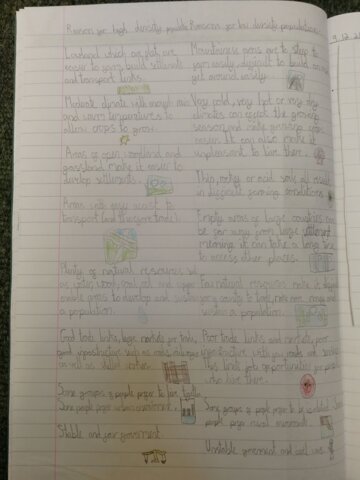 Reasons for high density population Reasons for low density populations
Lowland which are flat, are
easier to build settlements
and transport links.
Mountainous areas are to steep to
easily, difficult to build on and
get around easily.
Moderate climate with enough rain
and warm temperatures to
allow crops to grow.
Very cold, very hot or very dry
climates can the growing
season and make growing crops
It can also make it
unpleasant to live there.
Areas of open woodland and
grassland make it easier to
develop settlements.
Thin, rocky or acid soils all result
in difficult farming conditions
Areas with easy access to
transport (and therefore trade).
Empty areas of large countries can
be far away from large settlement
meaning it can take a long time
to access other places.
Plenty of natural resources such
as water, wood, coal, oil and
enable areas to develop and sustain
a population.
Few natural resources make it difficult
for a country to trade, make money and
sustain a population.
Good trade links, large markets for trade,
good infrastructure such as roads, railways
as well as skilled workers.
Poor trade links and markets, poor
infrastructure with few roads and
This limits job opportunities for people
who live there.
Some groups of people prefer to live together.
Some people prefer urban environment.
Some groups of people prefer to be isolated. Some
people prefer rural environment.
Stable and government.
Unstable government and civil war.